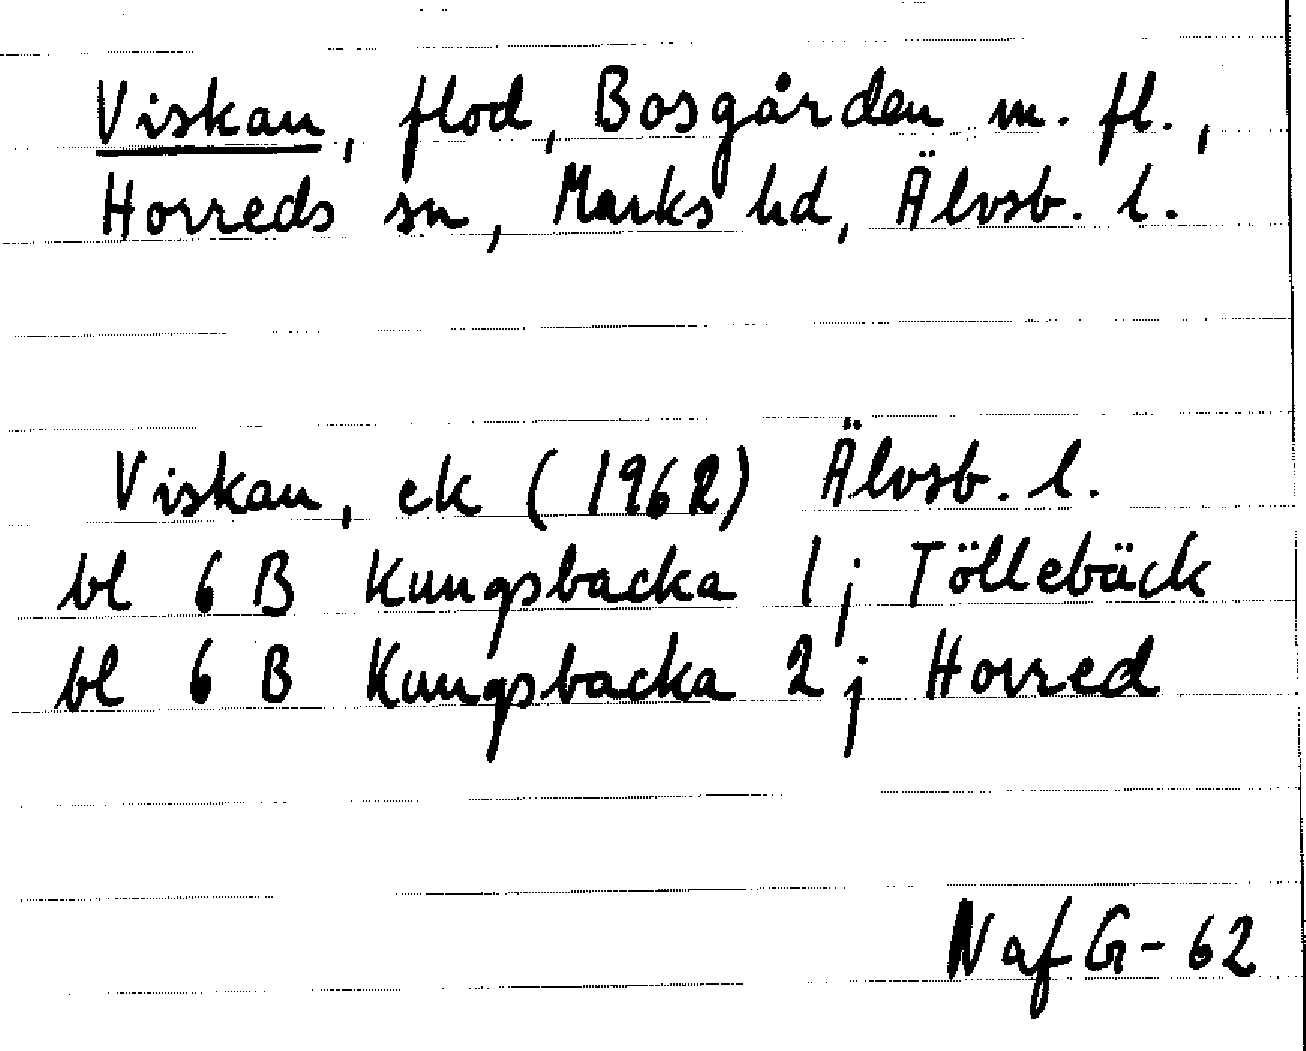 Viskan, flod, Bosgården m. fl.,
Horreds sn, Marks hd, Älvsb. l.
Viskan, ek (1962) Älvsb. l.
bl 6 B Kungsbacka 1 j Töllebäck
bl 6 B Kungsbacka 2 j Horred
N af G-62